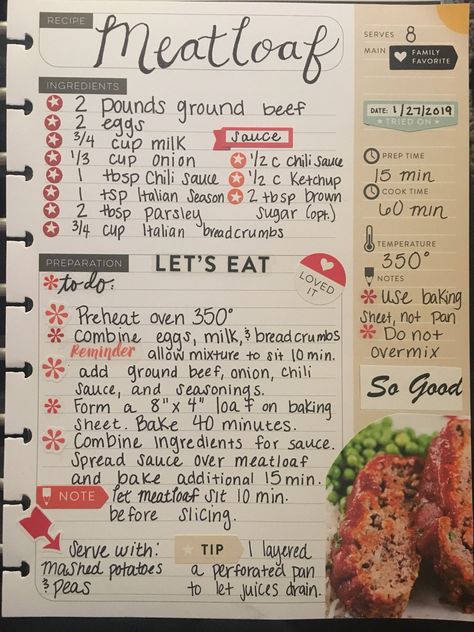 RECIPE
Meatloaf
SERVES 8
MAIN
FAMILY
FAVORITE
INGREDIENTS
2 pounds ground beef
2 eggs
3/4 cup milk
1/3 cup onion
1 tbsp Chili sauce
1 tsp Italian Season
2 tbsp parsley
3/4 cup Italian breadcrumbs
sauce
1/2 c Chili sauce
1/2 c Ketchup
2 tbsp brown
sugar (opt.)
DATE: 1/27/2019
TRIED ON
PREP TIME
15 min
COOK TIME
60 min
TEMPERATURE
350°
NOTES
Use baking
sheet, not pan
Do not
overmix
So Good
PREPARATION
LET'S EAT
LOVED
IT
to do:
Preheat oven 350°
Combine eggs, milk, & breadcrumbs
Reminder allow mixture to sit 10 min.
add ground beef, onion, chili
sauce, and seasonings.
Form a 8" x 4" loaf on baking
sheet. Bake 40 minutes.
Combine ingredients for sauce.
Spread sauce over meatloaf
and bake additional 15 min.
NOTE let meatloaf sit 10 min.
before slicing.
Serve with:
mashed potatoes
& peas
TIP I layered
a perforated pan
to let juices drain.